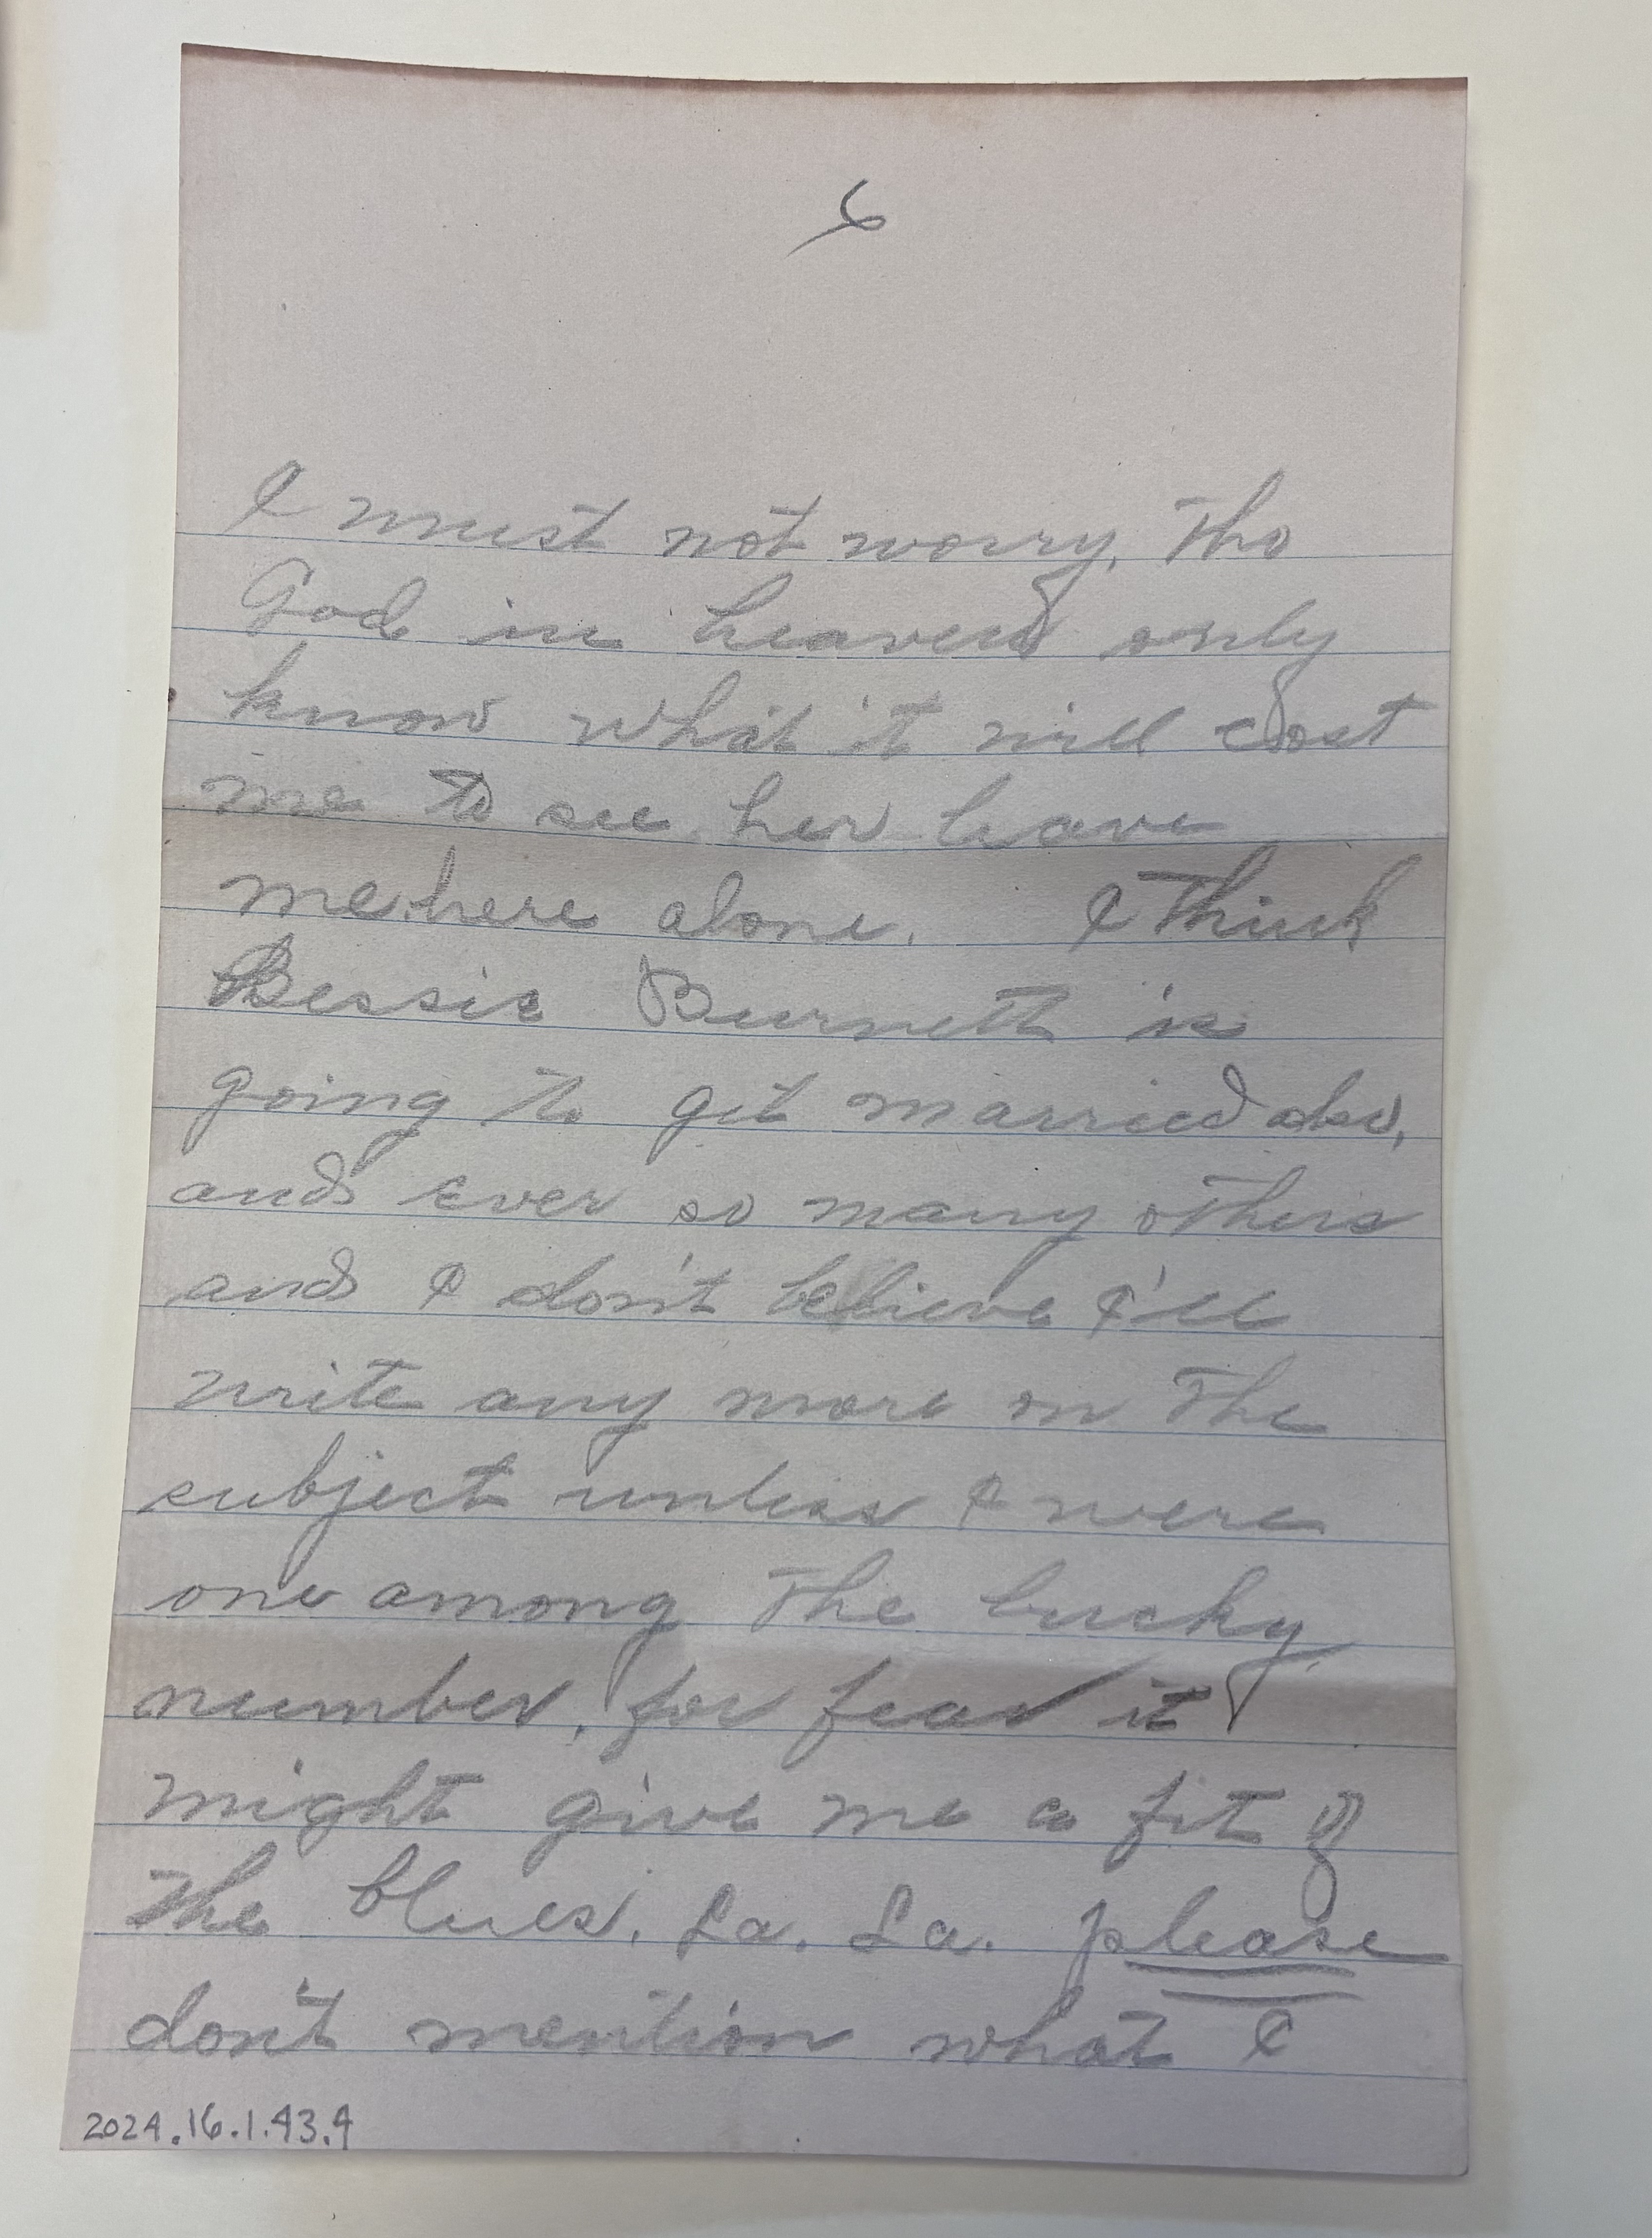 6
I must not worry, tho
God in heaven only
know what it will cost
me to see her leave
me here alone. I think
Bessie Burnett is
going to get married also,
and ever so many others
and I don't believe I'll
write any more on the
subject unless I were
one among the lucky
number, for fear it
might give me a fit of
the blues. La. La. please
don't mention what I
2024.16.1.43.4